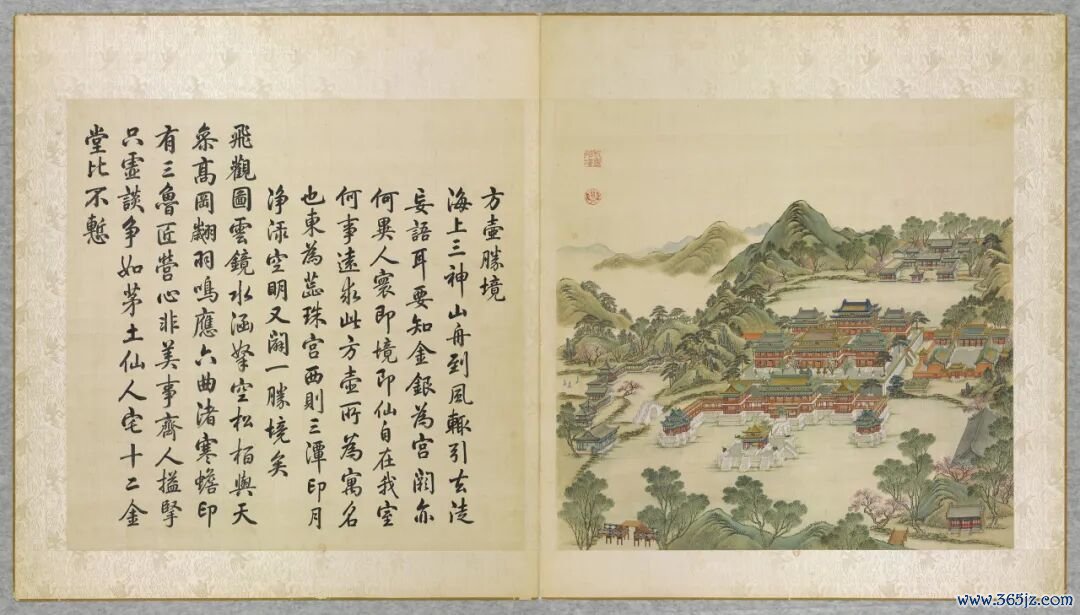 方壺勝境
海上三神山舟到風輒引去徒
妄語耳要知金銀為宮闕亦
何異人寰即境即仙自在我室
何事遠求此方壺所為寓名
也東為蕊珠宮西則三潭印月
淨渌空明又闢一勝境矣
飛觀圖雲鏡水涵拏空松栢與天
叅髙岡翽羽鳴應六曲渚寒蟾印
有三魯匠營心非美事齊人搤掔
只虛談争如茅土仙人宅十二金
堂比不慙
www.365jz.com